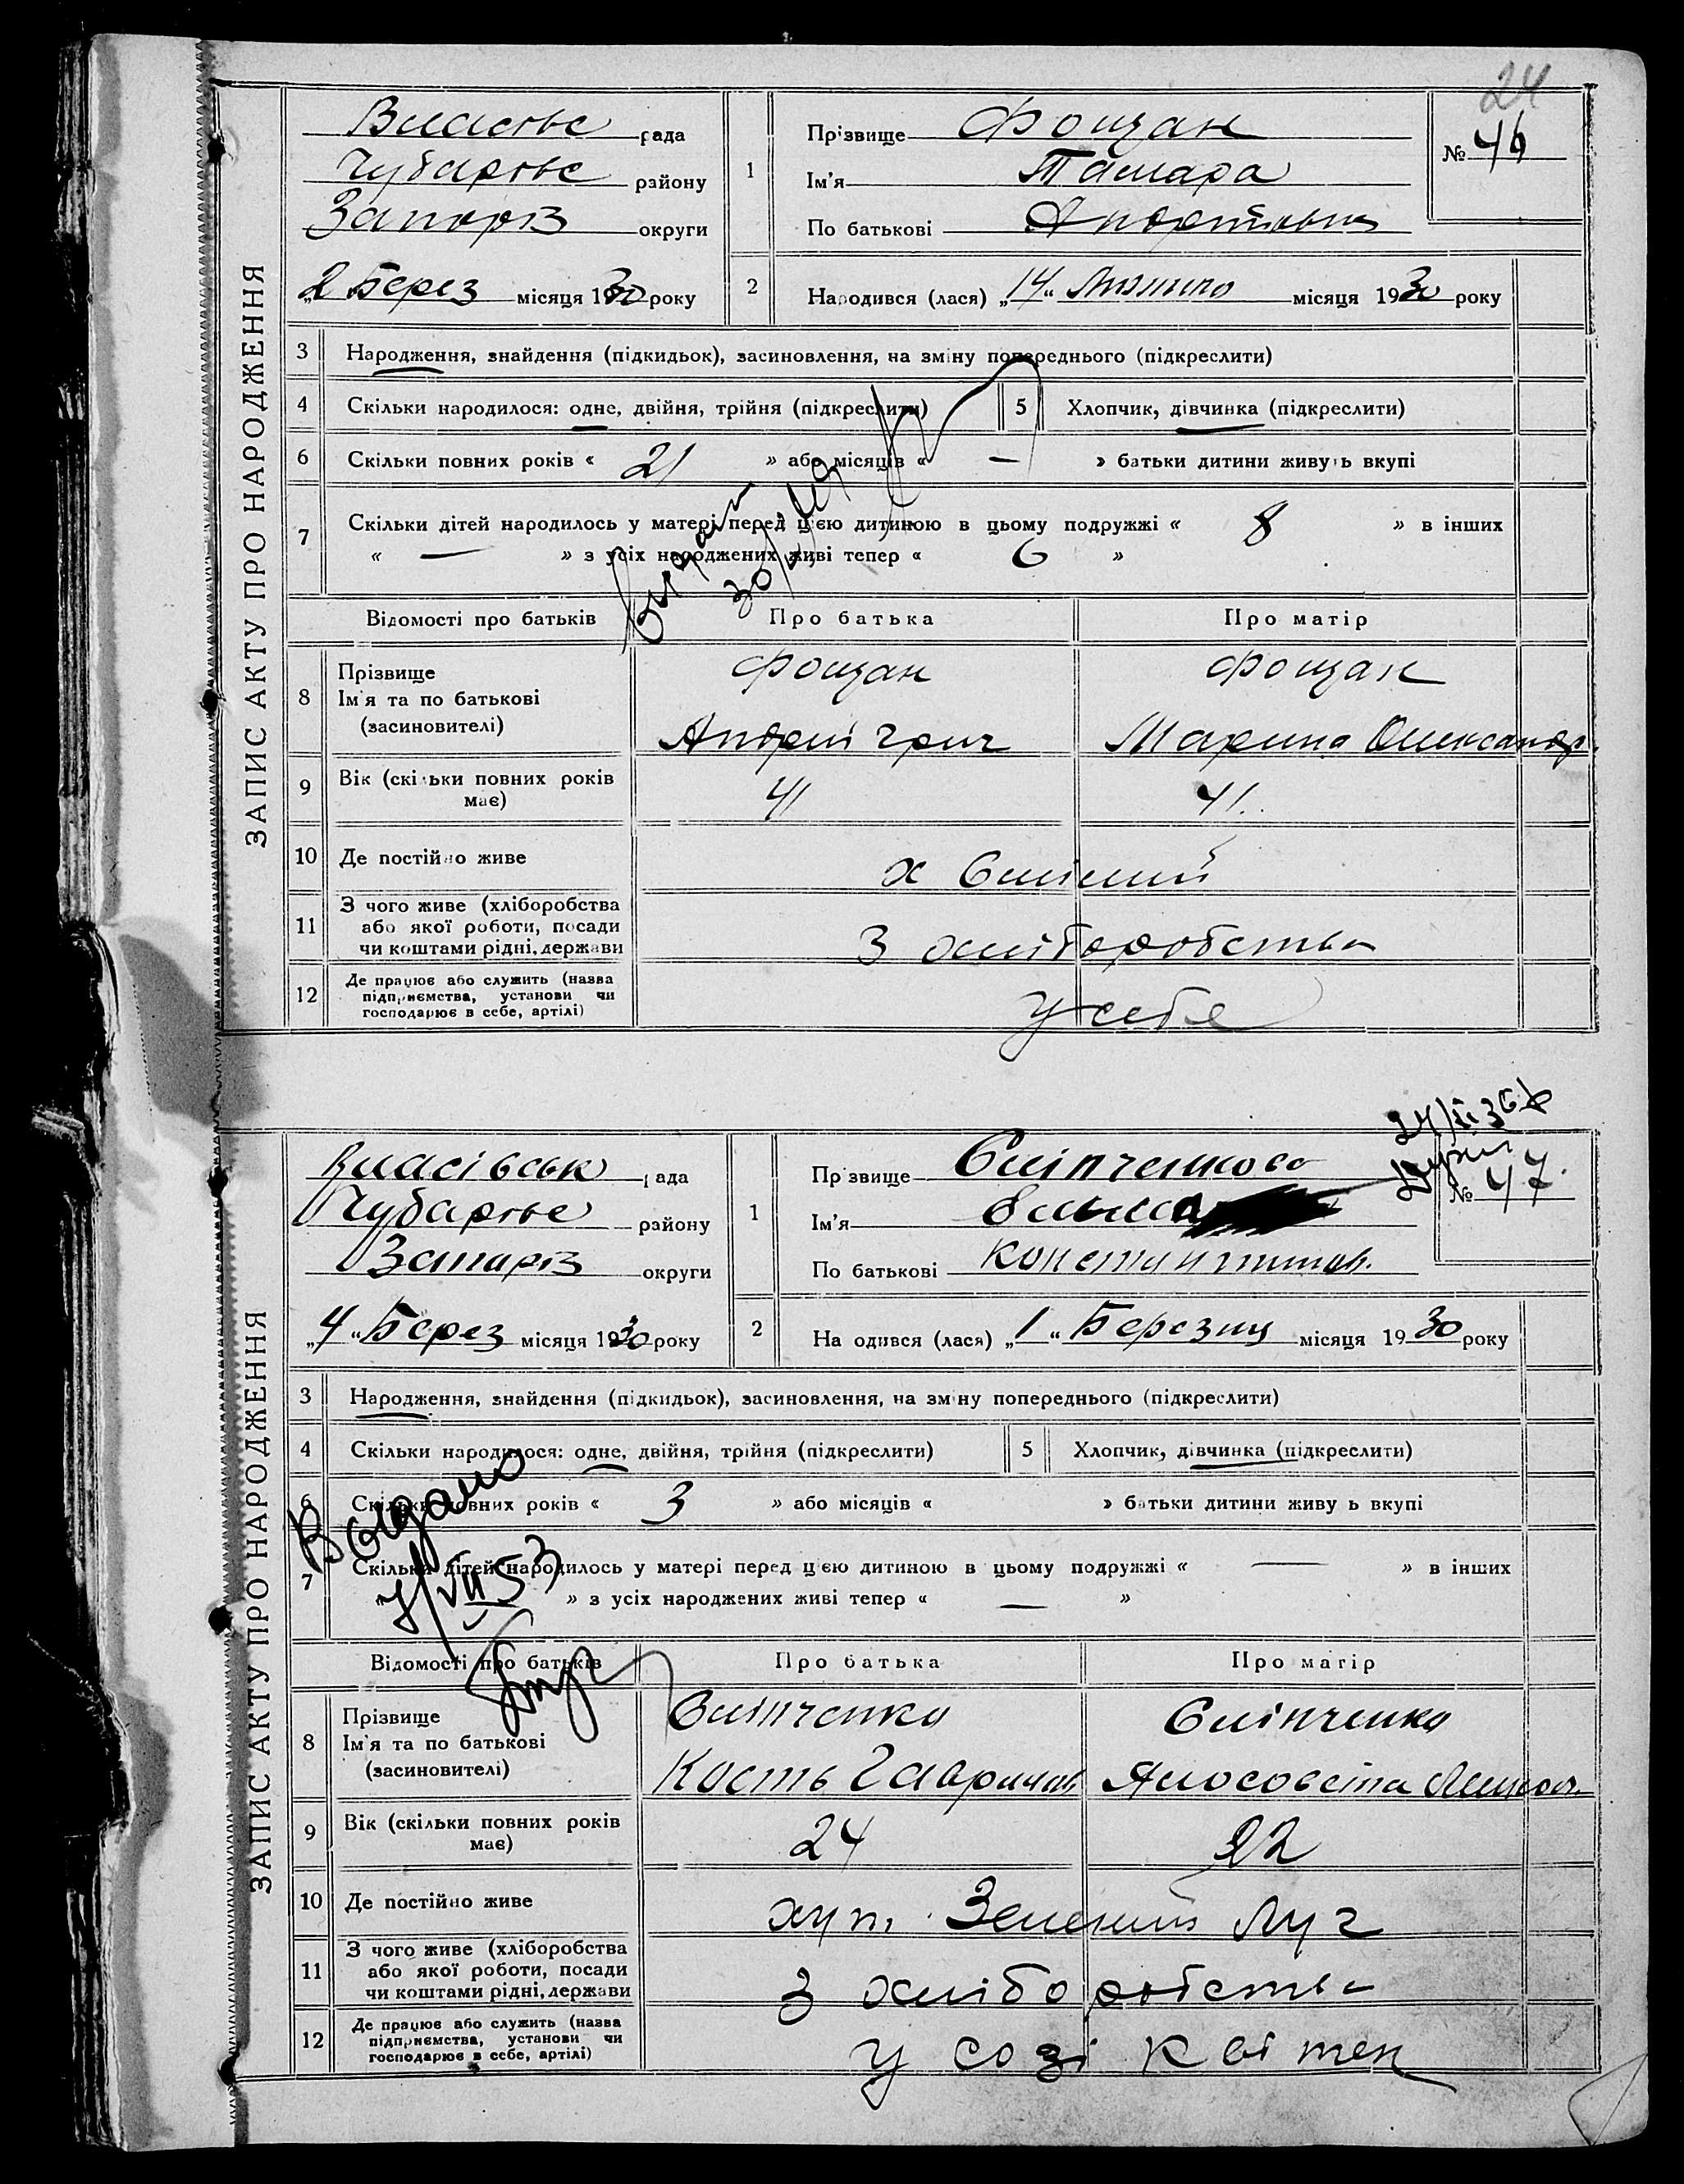 24
ЗАПИС АКТУ ПРО НАРОДЖЕННЯ
Власівс рада
Чубарівс району
Запоріз округи
„2“ Берез місяця 1930 року
1 Прізвище Фощан
Ім'я Тамара
По батькові Андріївна
№ 46
2 Народився (лася) „14“ Лютого місяця 1930 року
3 Народження, знайдення (підкидьок), засиновлення, на зміну попереднього (підкреслити)
4 Скільки народилося: одне, двійня, трійня (підкреслити) 5 Хлопчик, дівчинка (підкреслити)
6 Скільки повних років « 21 » або місяців « — » батьки дитини живуть вкупі
7 Скільки дітей народилось у матері перед цією дитиною в цьому подружжі « 8 » в інших
« — » з усіх народжених живі тепер « 6 »
Відомості про батьків Про батька Про матір
8 Прізвище Ім'я та по батькові (засновителі)
Фощан Фощан
Андрій Григ Марина Олександр
9 Вік (скільки повних років має) 41 41.
10 Де постійно живе х
11 З чого живе (хліборобства або якої роботи, посади чи коштами рідні, держави З хліборобства
12 Де працює або служить (назва підприємства, установи чи господарює в себе, артілі) У себе
ЗАПИС АКТУ ПРО НАРОДЖЕННЯ
Власівськ рада
Чубарівс району
Запоріз округи
„4“ Берез місяця 1930 року
1 Прізвище Сліпченкова
Ім'я
По батькові Константинов.
№ 47.
2 Народився (лася) „1“ Березня місяця 1930 року
3 Народження, знайдення (підкидьок), засиновлення, на зміну попереднього (підкреслити)
4 Скільки народилося: одне, двійня, трійня (підкреслити) 5 Хлопчик, дівчинка (підкреслити)
6 Скільки повних років « 3 » або місяців « » батьки дитини живуть вкупі
7 Скільки дітей народилось у матері перед цією дитиною в цьому подружжі « — » в інших
« » з усіх народжених живі тепер « — »
Видано
7/VII 53
Відомості про батьків Про батька Про матір
8 Прізвище Ім'я та по батькові (засиновителі)
Сліпченко Сліпченко
Кость Гаврилов
9 Вік (скільки повних років має) 24 22
10 Де постійно живе хут. Зелений Луг
11 З чого живе (хліборобства або якої роботи, посади чи коштами рідні, держави З хліборобства
12 Де працює або служить (назва підприємства, установи чи господарює в себе, артілі) У созі